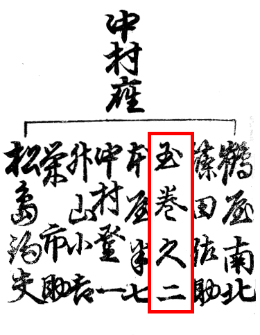 中村座
鶴屋南北
篠田佐助
玉巻久二
本屋半七
中村登一
外山小吉
栄市助
松島陽夫